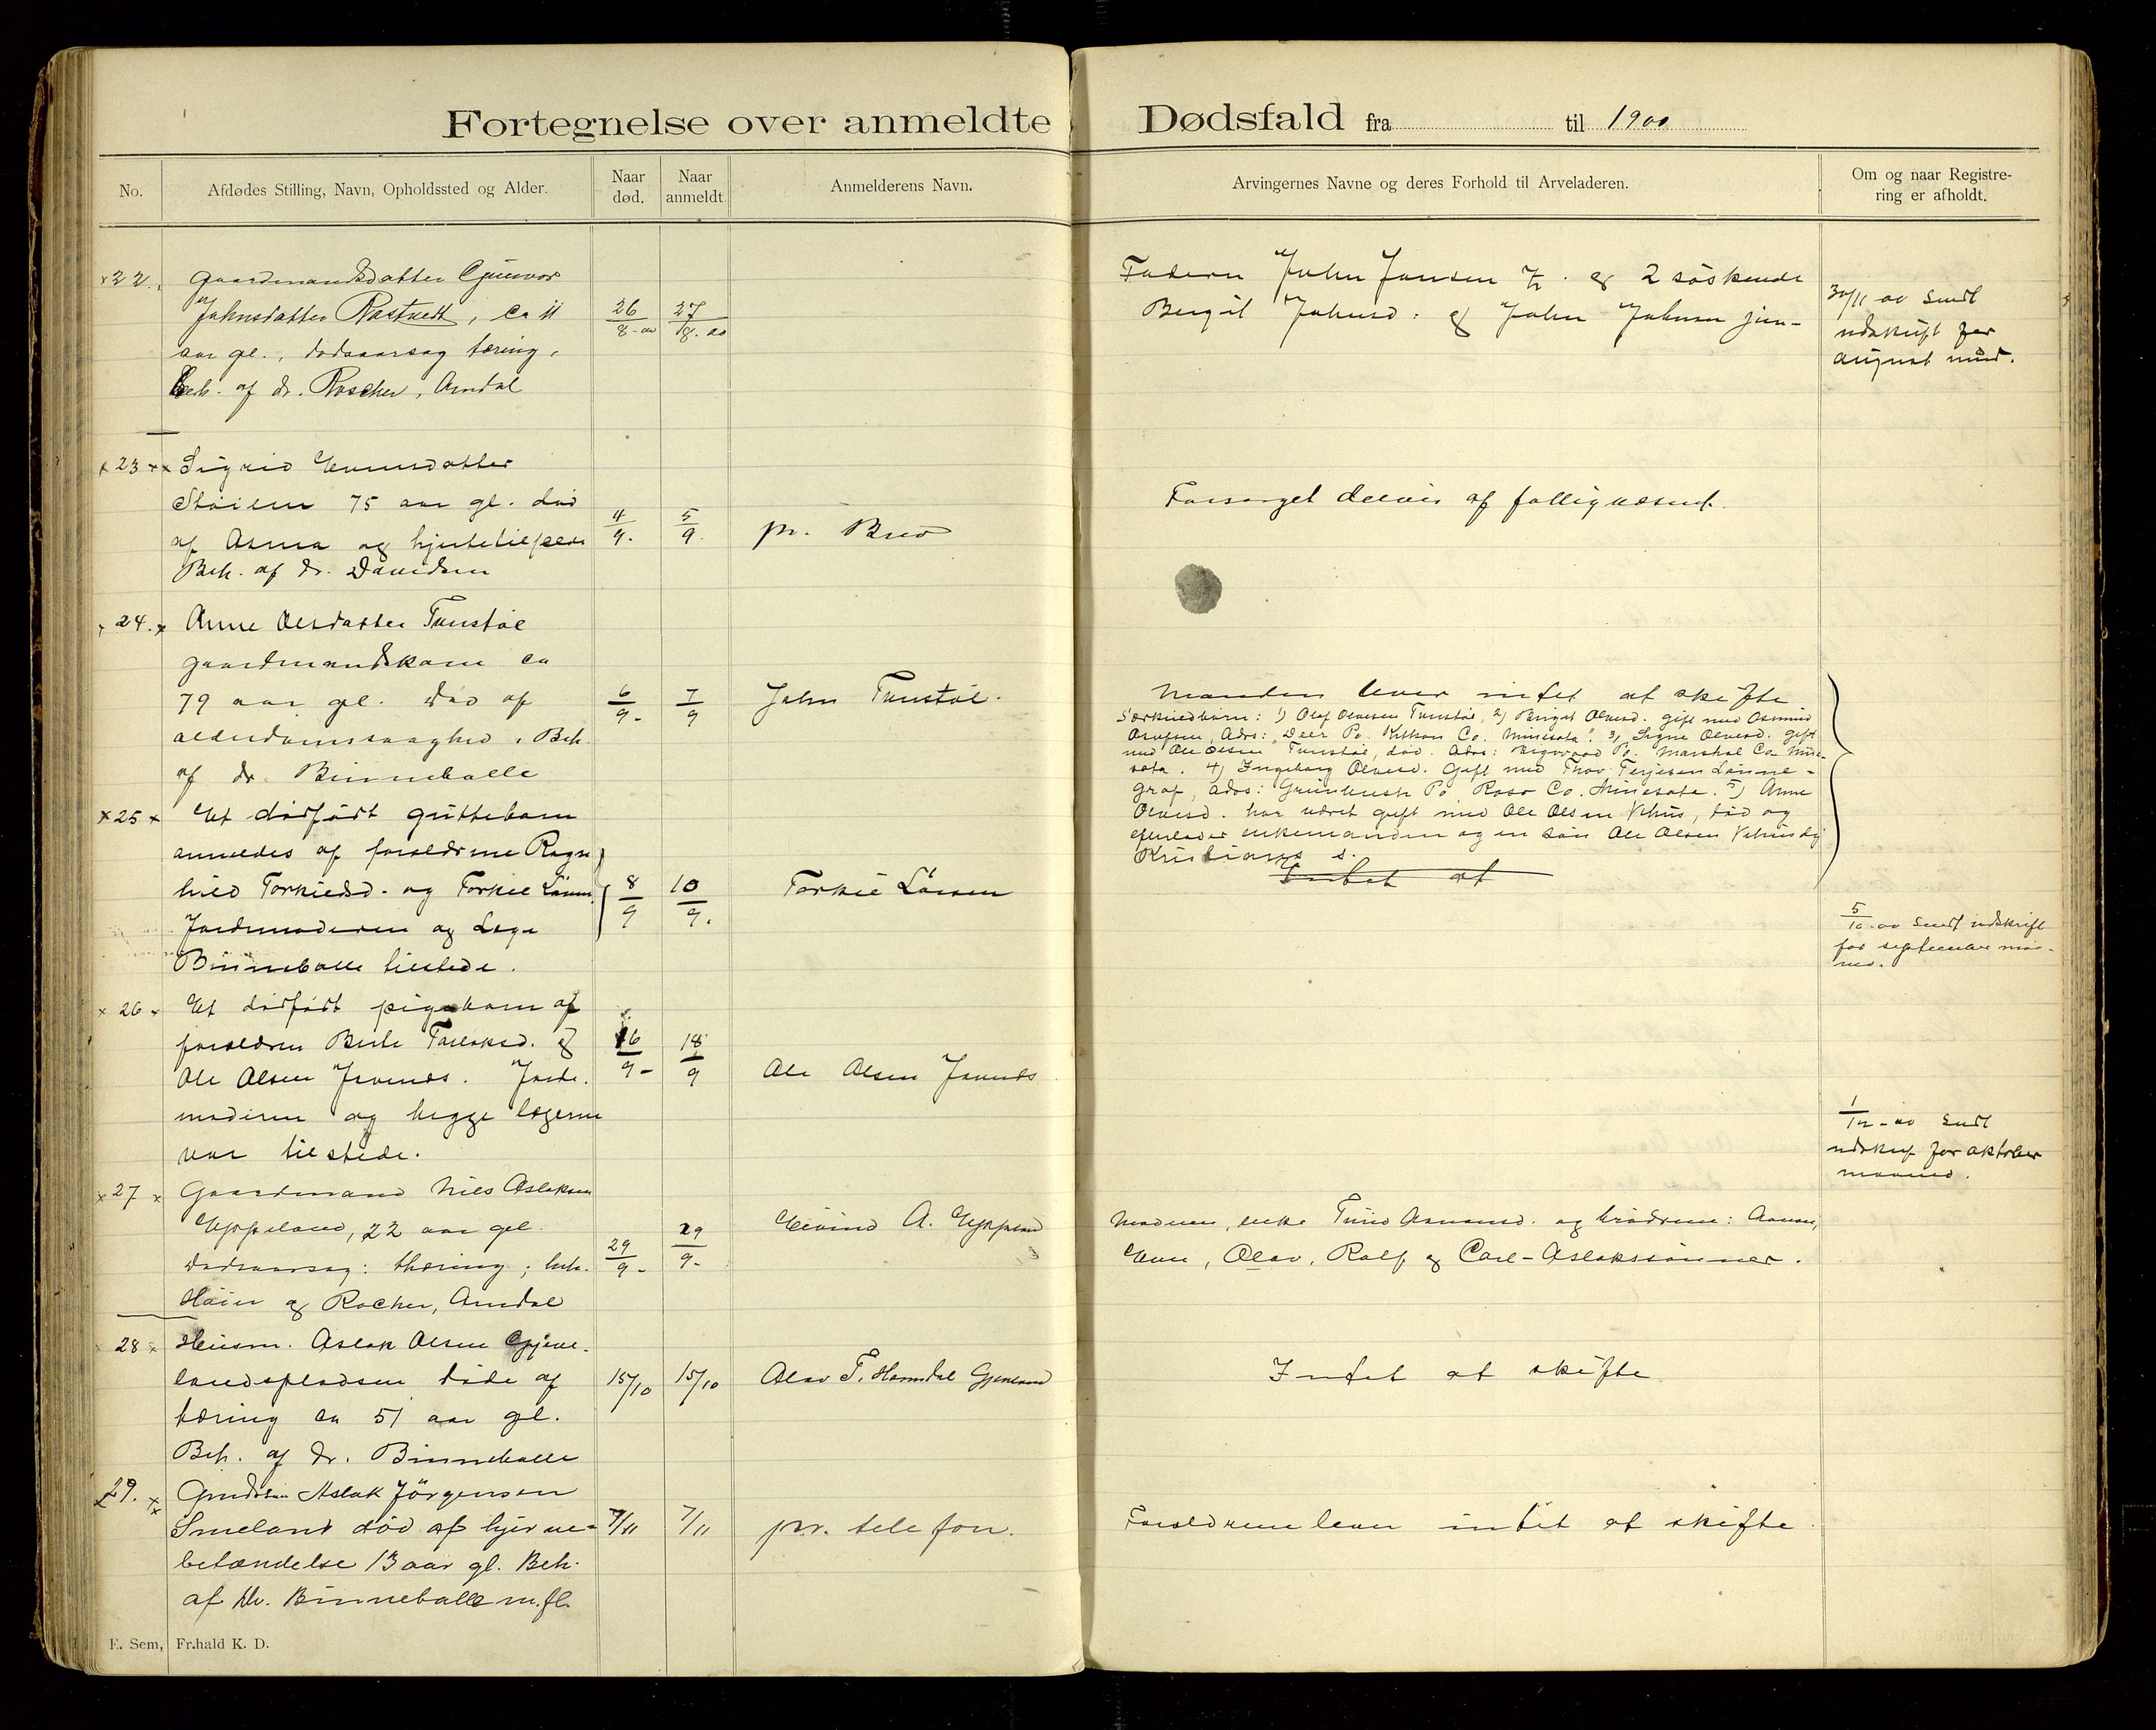 Fortegnelse over anmeldte Dødsfald fra til 1900
No.
Afdødes Stilling, Navn, Opholdssted og Alder.
Naar død.
Naar anmeldt.
Anmelderens Navn.
Arvingernes Navne og deres Forhold til Arveladeren.
Om og naar Registrering er afholdt.
22. gaardmandsdatter Gunvor
Johnsdatter Rostvedt, ca 11
aar gl., dødsaarsag tæring,
Beh. af dr. Roscher, Arndal
26/8-00
27/8.00
Faderen John Jonsen og 2 søskende
Bergit Johnsd. og John Johnsen jun-
30/11 00 sendt
udskrift for
august mnd.
23 Sigrid Evensdatter
Støilen 75 aar gl. død
af Asma og hjertetilfælde
Beh. af dr. Davidsen
4/9.
5/9.
pr. Brev
Forsørget delvis af fattigvæsnet.
24. Anne Olsdatter Tunstøl
gaardmandskone ca
79 aar gl. Død af
alderdomssvaghed. Beh.
af dr. Binneballe
6/9-
7/9
John Tunstøl.
Manden lever intet at skifte
Særkuldbørn: 1) Olaf Olvesen Tunstøl, 2) Birgit Olvesd. gift med Osmund
Olvesd. Adrs: "Deer Po. Kittson Co. Minesota". 3) Signe Olvesd. gift
med Ole Olsen Tunstøl, død. Adrs: Po. Marshal Co Mine-
sota. 4) Ingeborg Olvesd. Gift med Thov Terjesen Lønne-
grav, Adrs: Grimbush Po Roso Co. Minesota. 5) Anne
Olvesd. har været gift med Ole Olsen Vehus, død og
efterlader enkemanden og en søn Ole Olsen Vehus
Kristianss d.
Intet at
25 Et dødfødt guttebarn
anmeldes af forældrene Ragn
hild Torkildsd. og Torkil Larsen.
Jordemoderen og Læge
Binneballe tilstede.
8/9
10/9.
Torkil Larsen
5/10-00 sendt udskrift
for september maa-
ned.
26 Et dødfødt pigebarn af
forældrene Berte Tarlaksd. og
Ole Olsen Jævnes. Jorde.
moderen og begge lægerne
var tilstede.
16/9-
18/9
Ole Olsen Jævnes
1/12-00 sendt
udskrift for oktober
maaned.
27 Gaardmand Nils Aslaksen
Eppeland, 22 aar gel.
Dødsaarsag: thæring; beh.
Høier og Rocher, Arndal
29/9-
29/9-
Eivind A. Eppeland
Moderen, enke Turid Aanonsd. og brødrene: Aanon,
Even, Olav, Rolf og Carl-Aslakssønner.
28 Husm. Aslak Olsen Gjeve-
landspladsen døde af
tæring ca 51 aar gl.
Beh. af dr. Binneballe
15/10
15/10
Olav T. Hamdal Gjeveland
Intet at skifte
29. Gmdsøn Aslak Jörgensen
Smeland död af hjerne-
betændelse 13 aar gl. Beh.
af Dr. Binneballe m.fl.
7/11
7/11
pr. telefon.
Forældrene lever intet at skifte.
E. Sem, Fr.hald K. D.